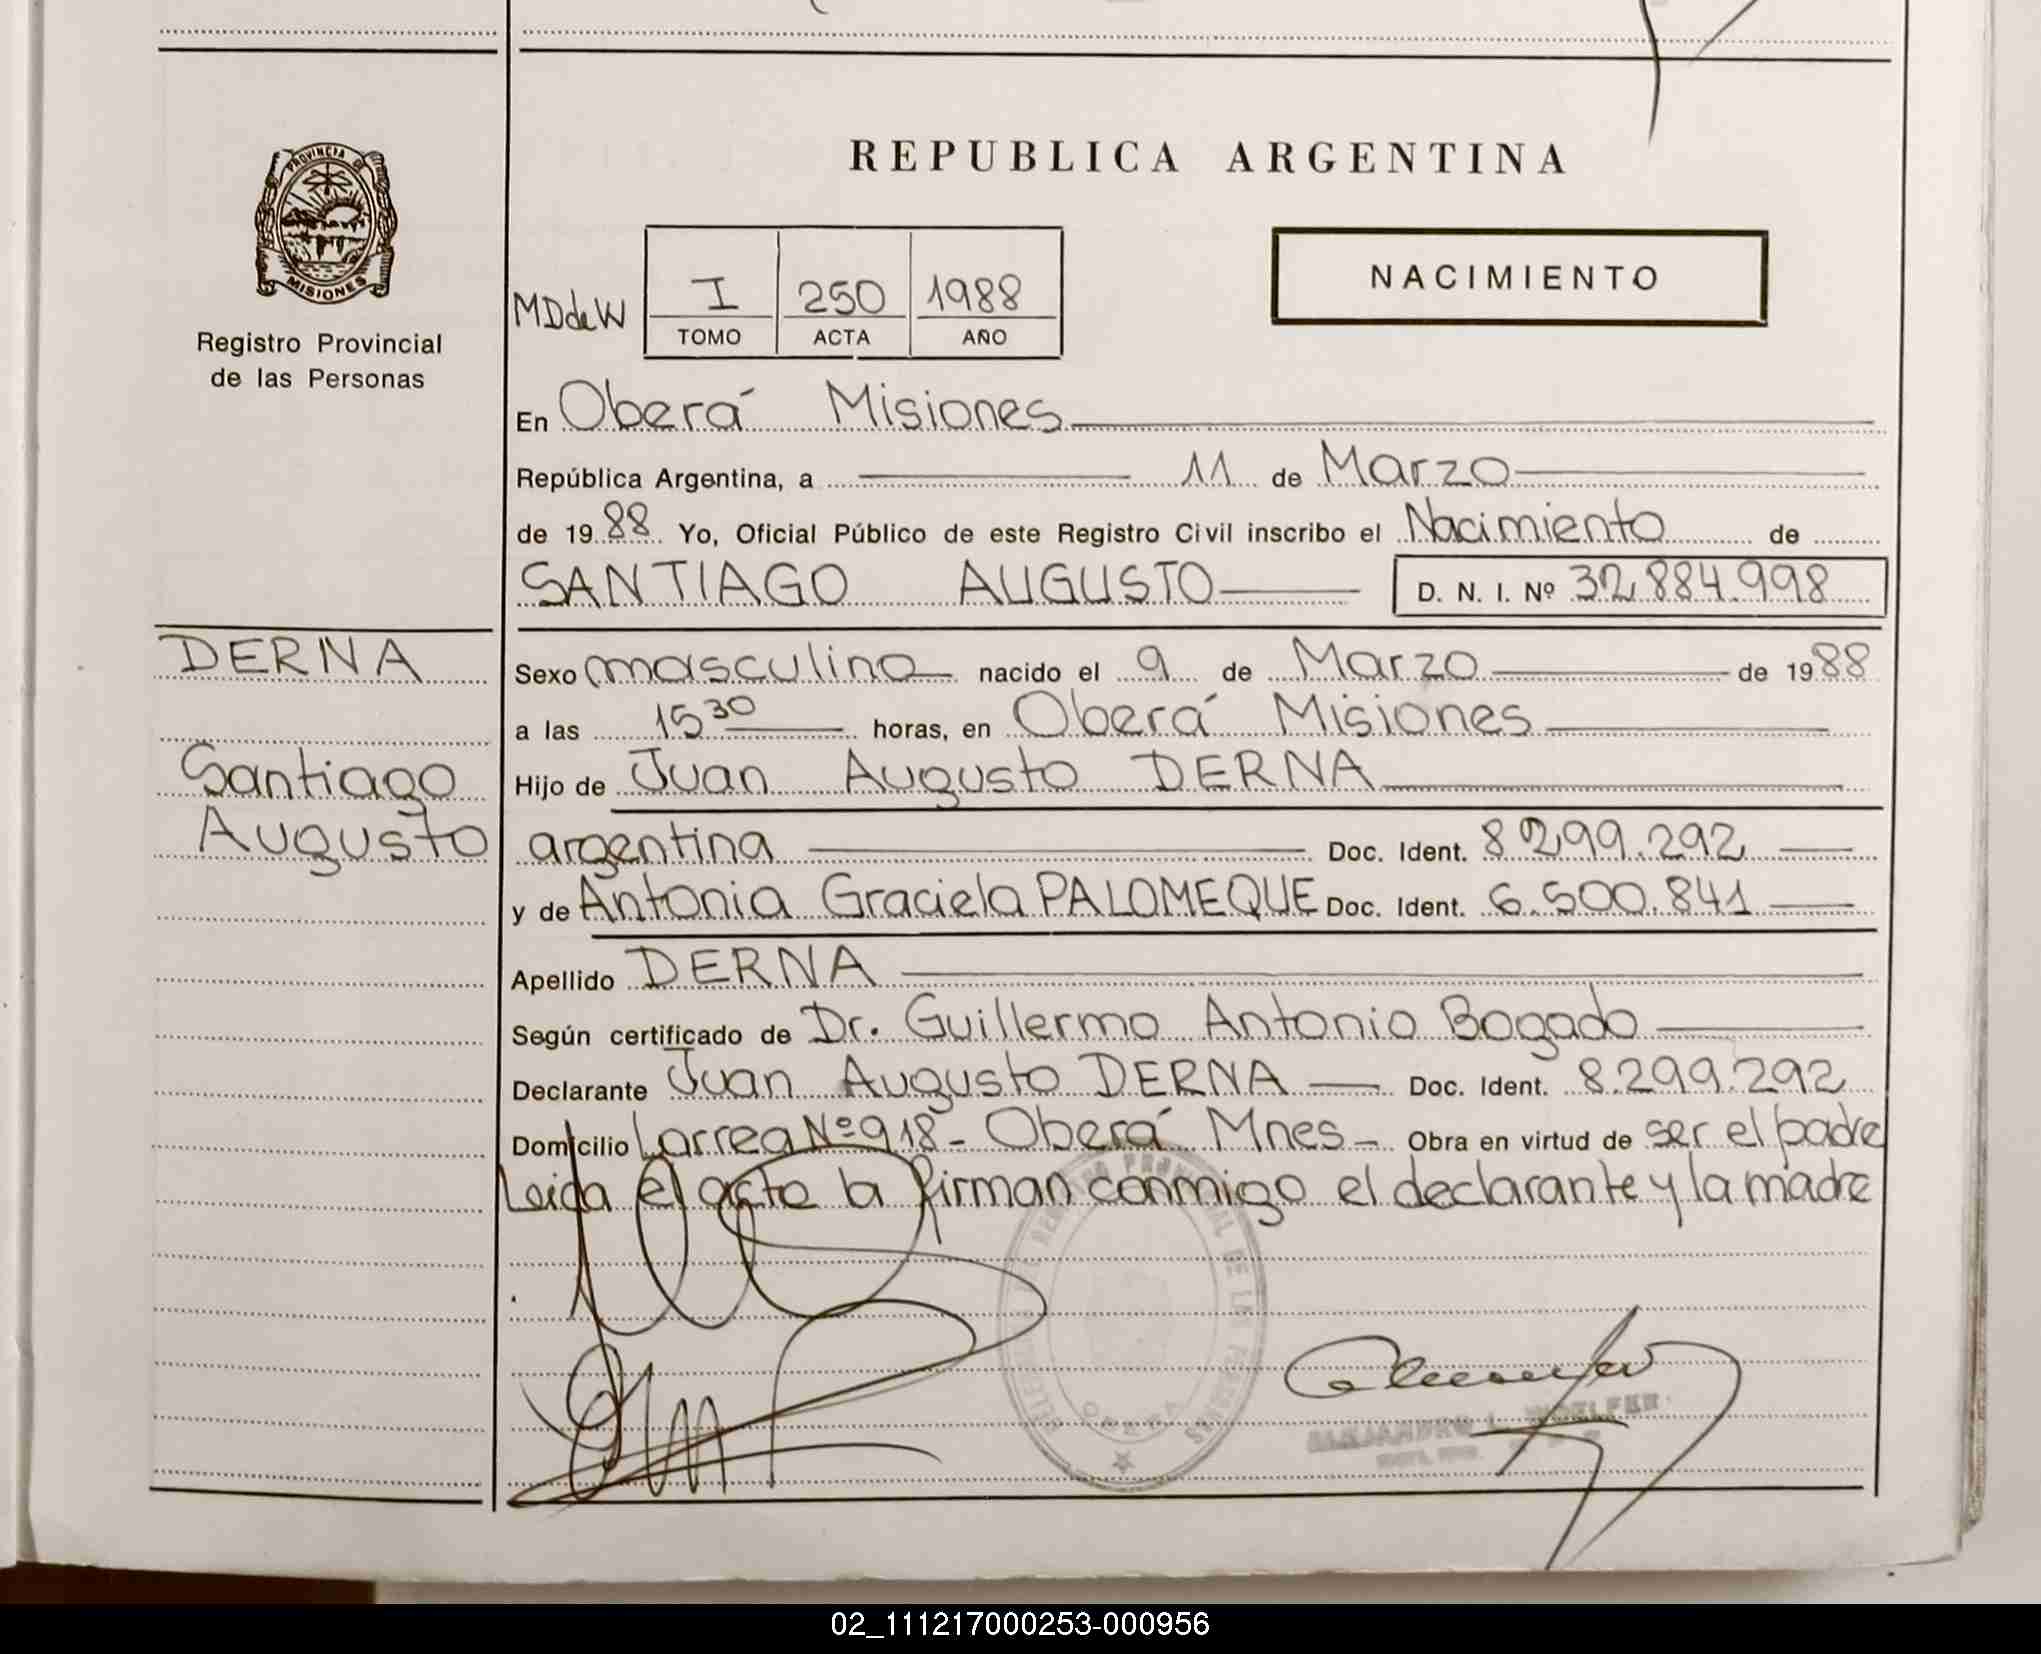 REPUBLICA ARGENTINA
PROVINCIA DE
MISIONES
Registro Provincial
de las Personas
NACIMIENTO
MDdeW
I 250 1988
TOMO ACTA AÑO
En Oberá Misiones
República Argentina, a 11 de Marzo
de 1988 Yo, Oficial Público de este Registro Civil inscribo el Nacimiento de
SANTIAGO AUGUSTO D. N. I. Nº 32.884.998
DERNA
Santiago
Augusto
Sexo masculino nacido el 9 de Marzo de 1988
a las 15 30 horas, en Oberá Misiones
Hijo de Juan Augusto DERNA
argentina Doc. Ident. 8.299.292
y de Antonia Graciela PALOMEQUE Doc. Ident. 6.500.841
Apellido DERNA
Según certificado de Dr. Guillermo Antonio Bogado
Declarante Juan Augusto DERNA Doc. Ident. 8.299.292
Domicilio Larrea Nº 918 - Oberá Mnes - Obra en virtud de ser el padre
Leida el acta la firman conmigo el declarante y la madre
REGISTRO PROVINCIAL DE LAS PERSONAS
OBERA
ALEJANDRO L. WOELFER
02_111217000253-000956